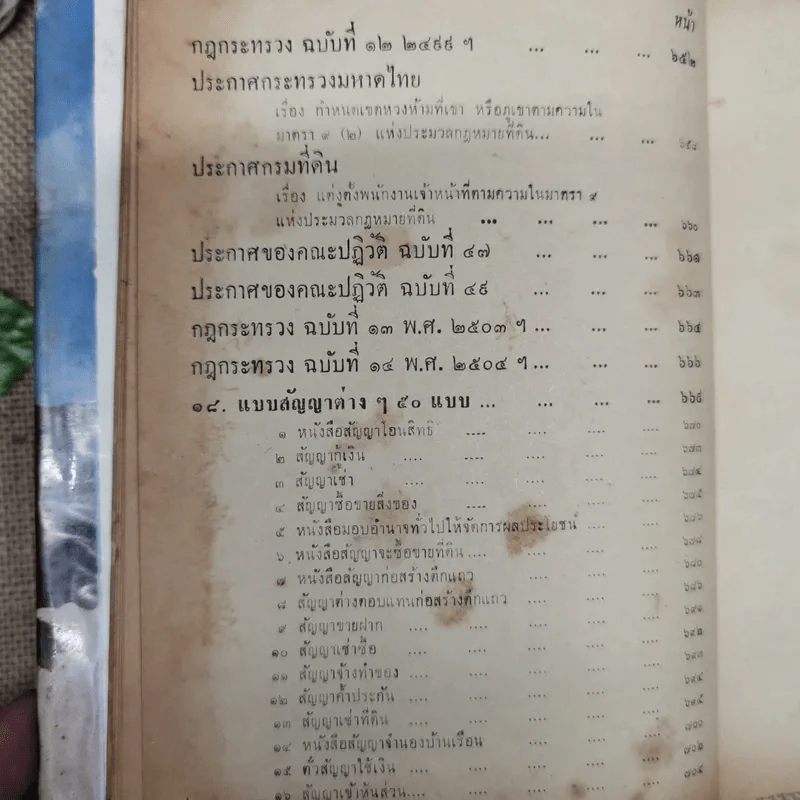 หน้า
กฎกระทรวง ฉบับที่ ๑๒ ๒๔๙๙ ฯ ... ... ... ๖๕๒
ประกาศกระทรวงมหาดไทย
เรื่อง กำหนดเขตหวงห้ามที่เขา หรือภูเขาตามความใน
มาตรา ๙ (๒) แห่งประมวลกฎหมายที่ดิน... ... ... ๖๕๘
ประกาศกรมที่ดิน
เรื่อง แต่งตั้งพนักงานเจ้าหน้าที่ตามความในมาตรา ๙
แห่งประมวลกฎหมายที่ดิน ... ... ... ๖๖๐
ประกาศของคณะปฏิวัติ ฉบับที่ ๔๗ ... ... ... ๖๖๑
ประกาศของคณะปฏิวัติ ฉบับที่ ๔๙ ... ... ... ๖๖๓
กฎกระทรวง ฉบับที่ ๑๓ พ.ศ. ๒๕๐๓ ฯ ... ... ... ๖๖๔
กฎกระทรวง ฉบับที่ ๑๔ พ.ศ. ๒๕๐๔ ฯ ... ... ... ๖๖๖
๑๘. แบบสัญญาต่าง ๆ ๕๐ แบบ ... ... ... ๖๖๙
๑ หนังสือสัญญาโอนสิทธิ .... .... ....
๒ สัญญากู้เงิน .... .... .... ....
๓ สัญญาเช่า .... .... .... ๖๘๔
๔ สัญญาซื้อขายสิ่งของ .... .... .... ๖๘๕
๕ หนังสือมอบอำนาจทั่วไปให้จัดการผลประโยชน์ .... .... ๖๘๖
๖ หนังสือสัญญาจะซื้อขายที่ดิน .... .... .... ๖๘๘
๗ หนังสือสัญญาก่อสร้างตึกแถว .... ....
๘ สัญญาต่างตอบแทนก่อสร้างตึกแถว .... ....
๙ สัญญาขายฝาก .... .... .... .... ๖๙๑
๑๐ สัญญาเช่าซื้อ .... .... .... .... ๖๙๒
๑๑ สัญญาจ้างทำของ .... .... .... .... ๖๙๓
๑๒ สัญญาค้ำประกัน .... .... .... .... ๖๙๔
๑๓ สัญญาเช่าที่ดิน .... .... .... .... ๖๙๕
๑๔ หนังสือสัญญาจำนองบ้านเรือน .... .... ๗๐๐
๑๕ ตั๋วสัญญาใช้เงิน .... .... .... .... ๗๐๒
๑๖ สัญญาเข้าหุ้นส่วน.... .... .... .... ๗๐๔